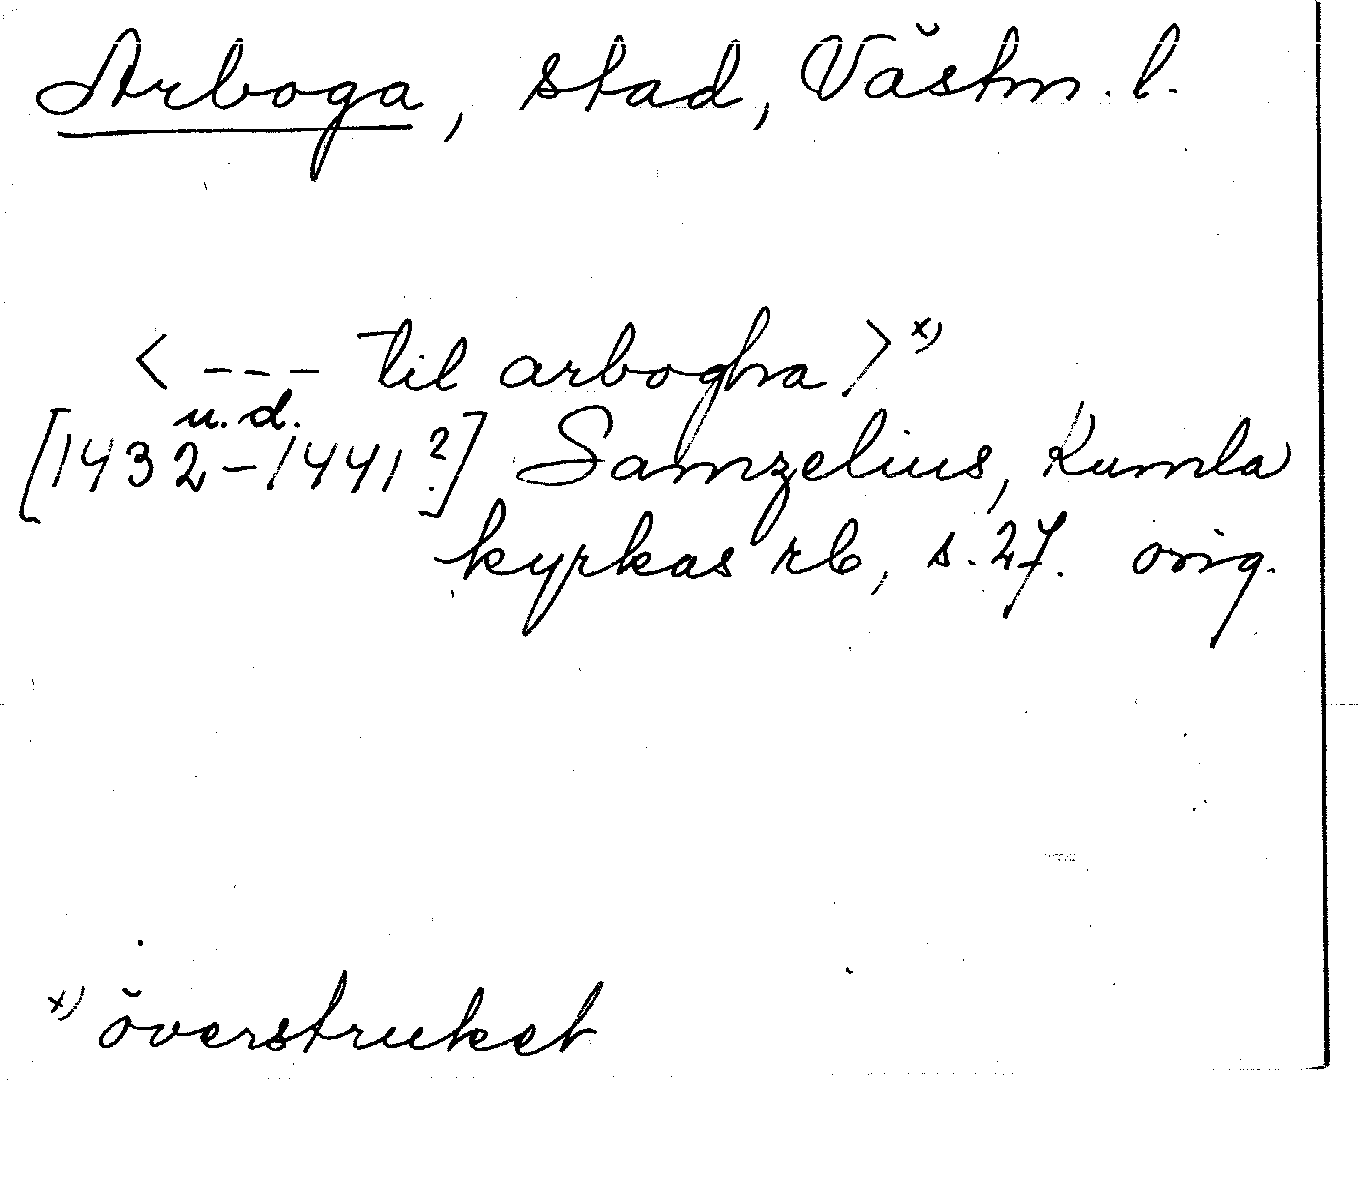 Arboga, stad, Västm. l.
< --- til arbogha >x)
u.d.
[1432-1441?] Samzelius, Kumla
kyrkas rb, s. 27. orig.
x) överstruket